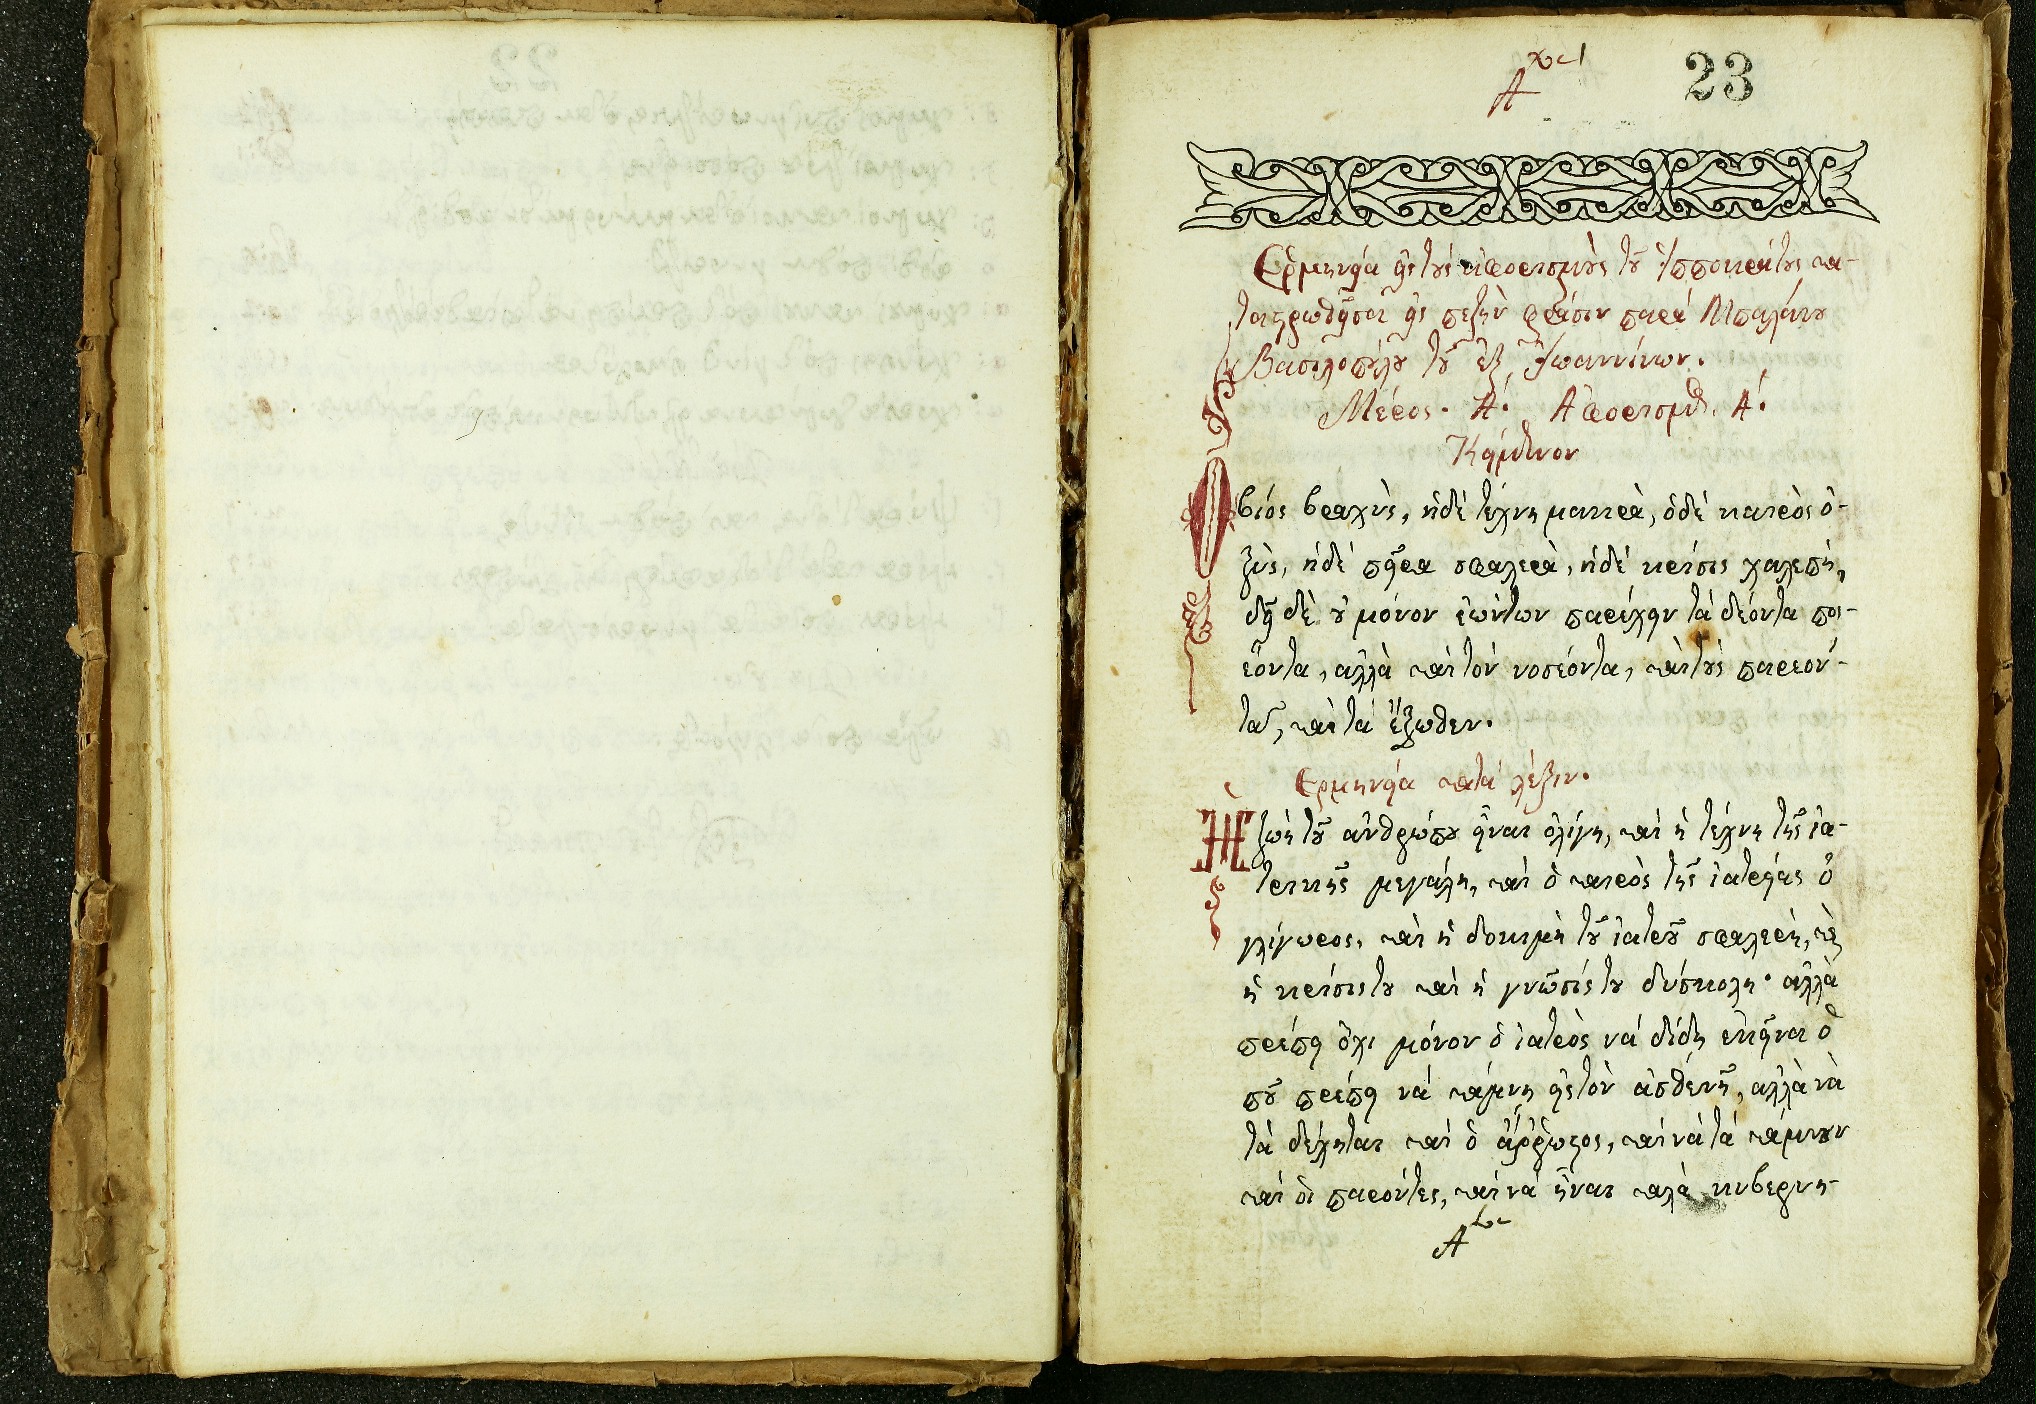 23
Ἑρμηνεία εἰς τοὺς ἀφορισμοὺς τοῦ Ἱπποκράτους κα-
τατρωθεῖσα εἰς πεζὴν φράσιν παρὰ Μπαλάνου
Βασιλοπούλου τοῦ ἐξ Ἰωαννίνων.
Μέρος. Α΄. Ἀφορισμὸς. Α΄.
Κείμενον
Ὁ βίος βραχὺς, ἡ δὲ τέχνη μακρὰ, ὁ δὲ καιρὸς ὀ-
ξὺς, ἡ δὲ πεῖρα σφαλερὰ, ἡ δὲ κρίσις χαλεπή,
δεῖ δὲ οὐ μόνον ἑωυτὸν παρέχειν τὰ δέοντα ποι-
εῦντα, ἀλλὰ καὶ τὸν νοσέοντα, καὶ τοὺς παρεόν-
τας, καὶ τὰ ἔξωθεν.
Ἑρμηνεία κατὰ λέξιν.
Ἡ ζωὴ τοῦ ἀνθρώπου εἶναι ὀλίγη, καὶ ἡ τέχνη τῆς ἰα-
τρικῆς μεγάλη, καὶ ὁ καιρὸς τῆς ἰατρείας ὀ
γλίγωρος, καὶ ἡ δοκιμὴ τοῦ ἰατροῦ σφαλερή, καὶ
ἡ κρίσις του καὶ ἡ γνῶσίς του δύσκολη· ἀλλὰ
πρέπει ὄχι μόνον ὁ ἰατρὸς νὰ δίδη ἐκεῖνα ὁ
ποῦ πρέπει νὰ κάμνη εἰς τὸν ἀσθενῆ, ἀλλὰ νὰ
τὰ δέχηται καὶ ὁ ἄῤῥωστος, καὶ νὰ τὰ κάμνουν
καὶ οἱ παρόντες, καὶ νὰ εἶναι καλὰ κυβερνη-